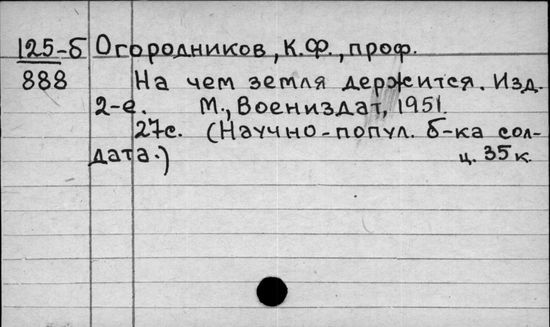 125-б Огородников, К.Ф., проф.
888 На чем земля держится. Изд.
2-е. М., Воениздат, 1951.
27с. (Научно-попул. б-ка сол-
дата.) ц. 35 к.